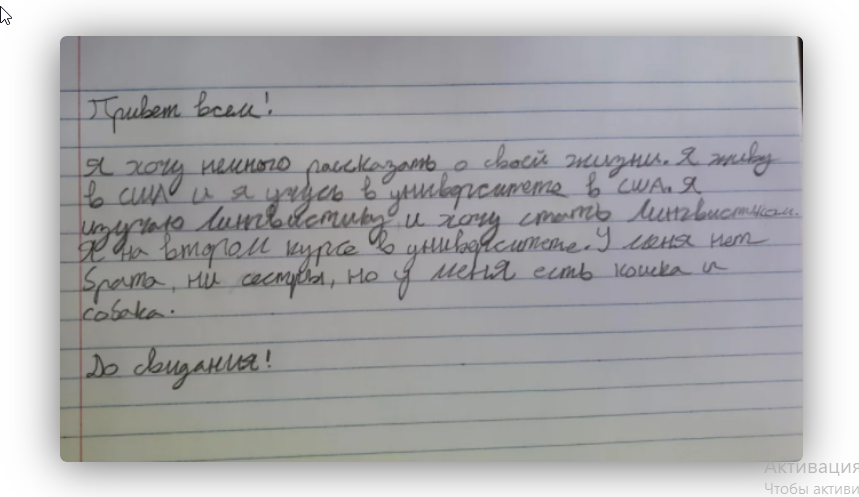 Привет всем!
Я хочу немного рассказать о своей жизни. Я живу
в США и я учусь в университете в США. Я
изучаю Лингвистику и хочу стать Лингвистиком.
Я на втором курсе в университете. У меня нет
брата, ни сестры, но у меня есть кошка и
собака.
До свидания!
Активация
Чтобы активи